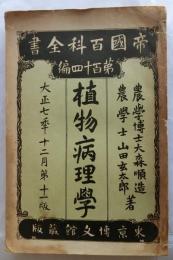 帝國百科全書
第百十四編
農學博士大森順造
農學士山田玄太郎
著
植物病理學
大正七年十二月第十一版
東京博文館蔵版